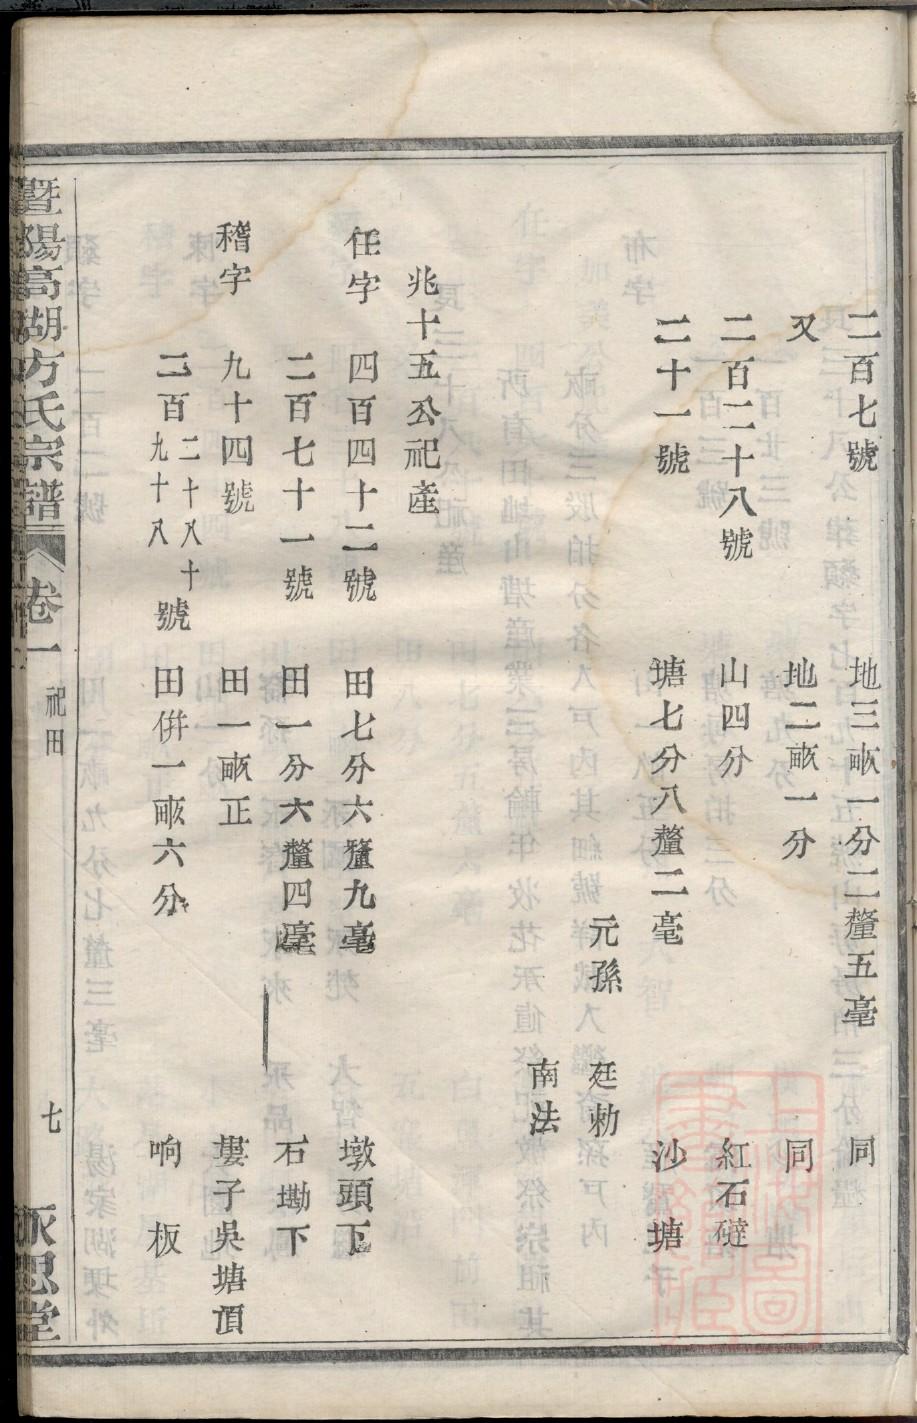 二百七號 地三畝一分二釐五毫 同
又 地二畝一分 同
二百二十八號 山四分 紅石硴
二十一號 塘七分八釐二毫 沙塘
元孫 廷勑
南法
兆十五公祀產
任字 四百四十二號 田七分六釐九毫 墩頭下
二百七十一號 田一分六釐四毫 石墈下
稽字 九十四號 田一畝正 婁子吳塘頂
二百二十八十九十八號 田併一畝六分 响板
暨陽高湖方氏宗譜 卷一 祀田 七 永思堂